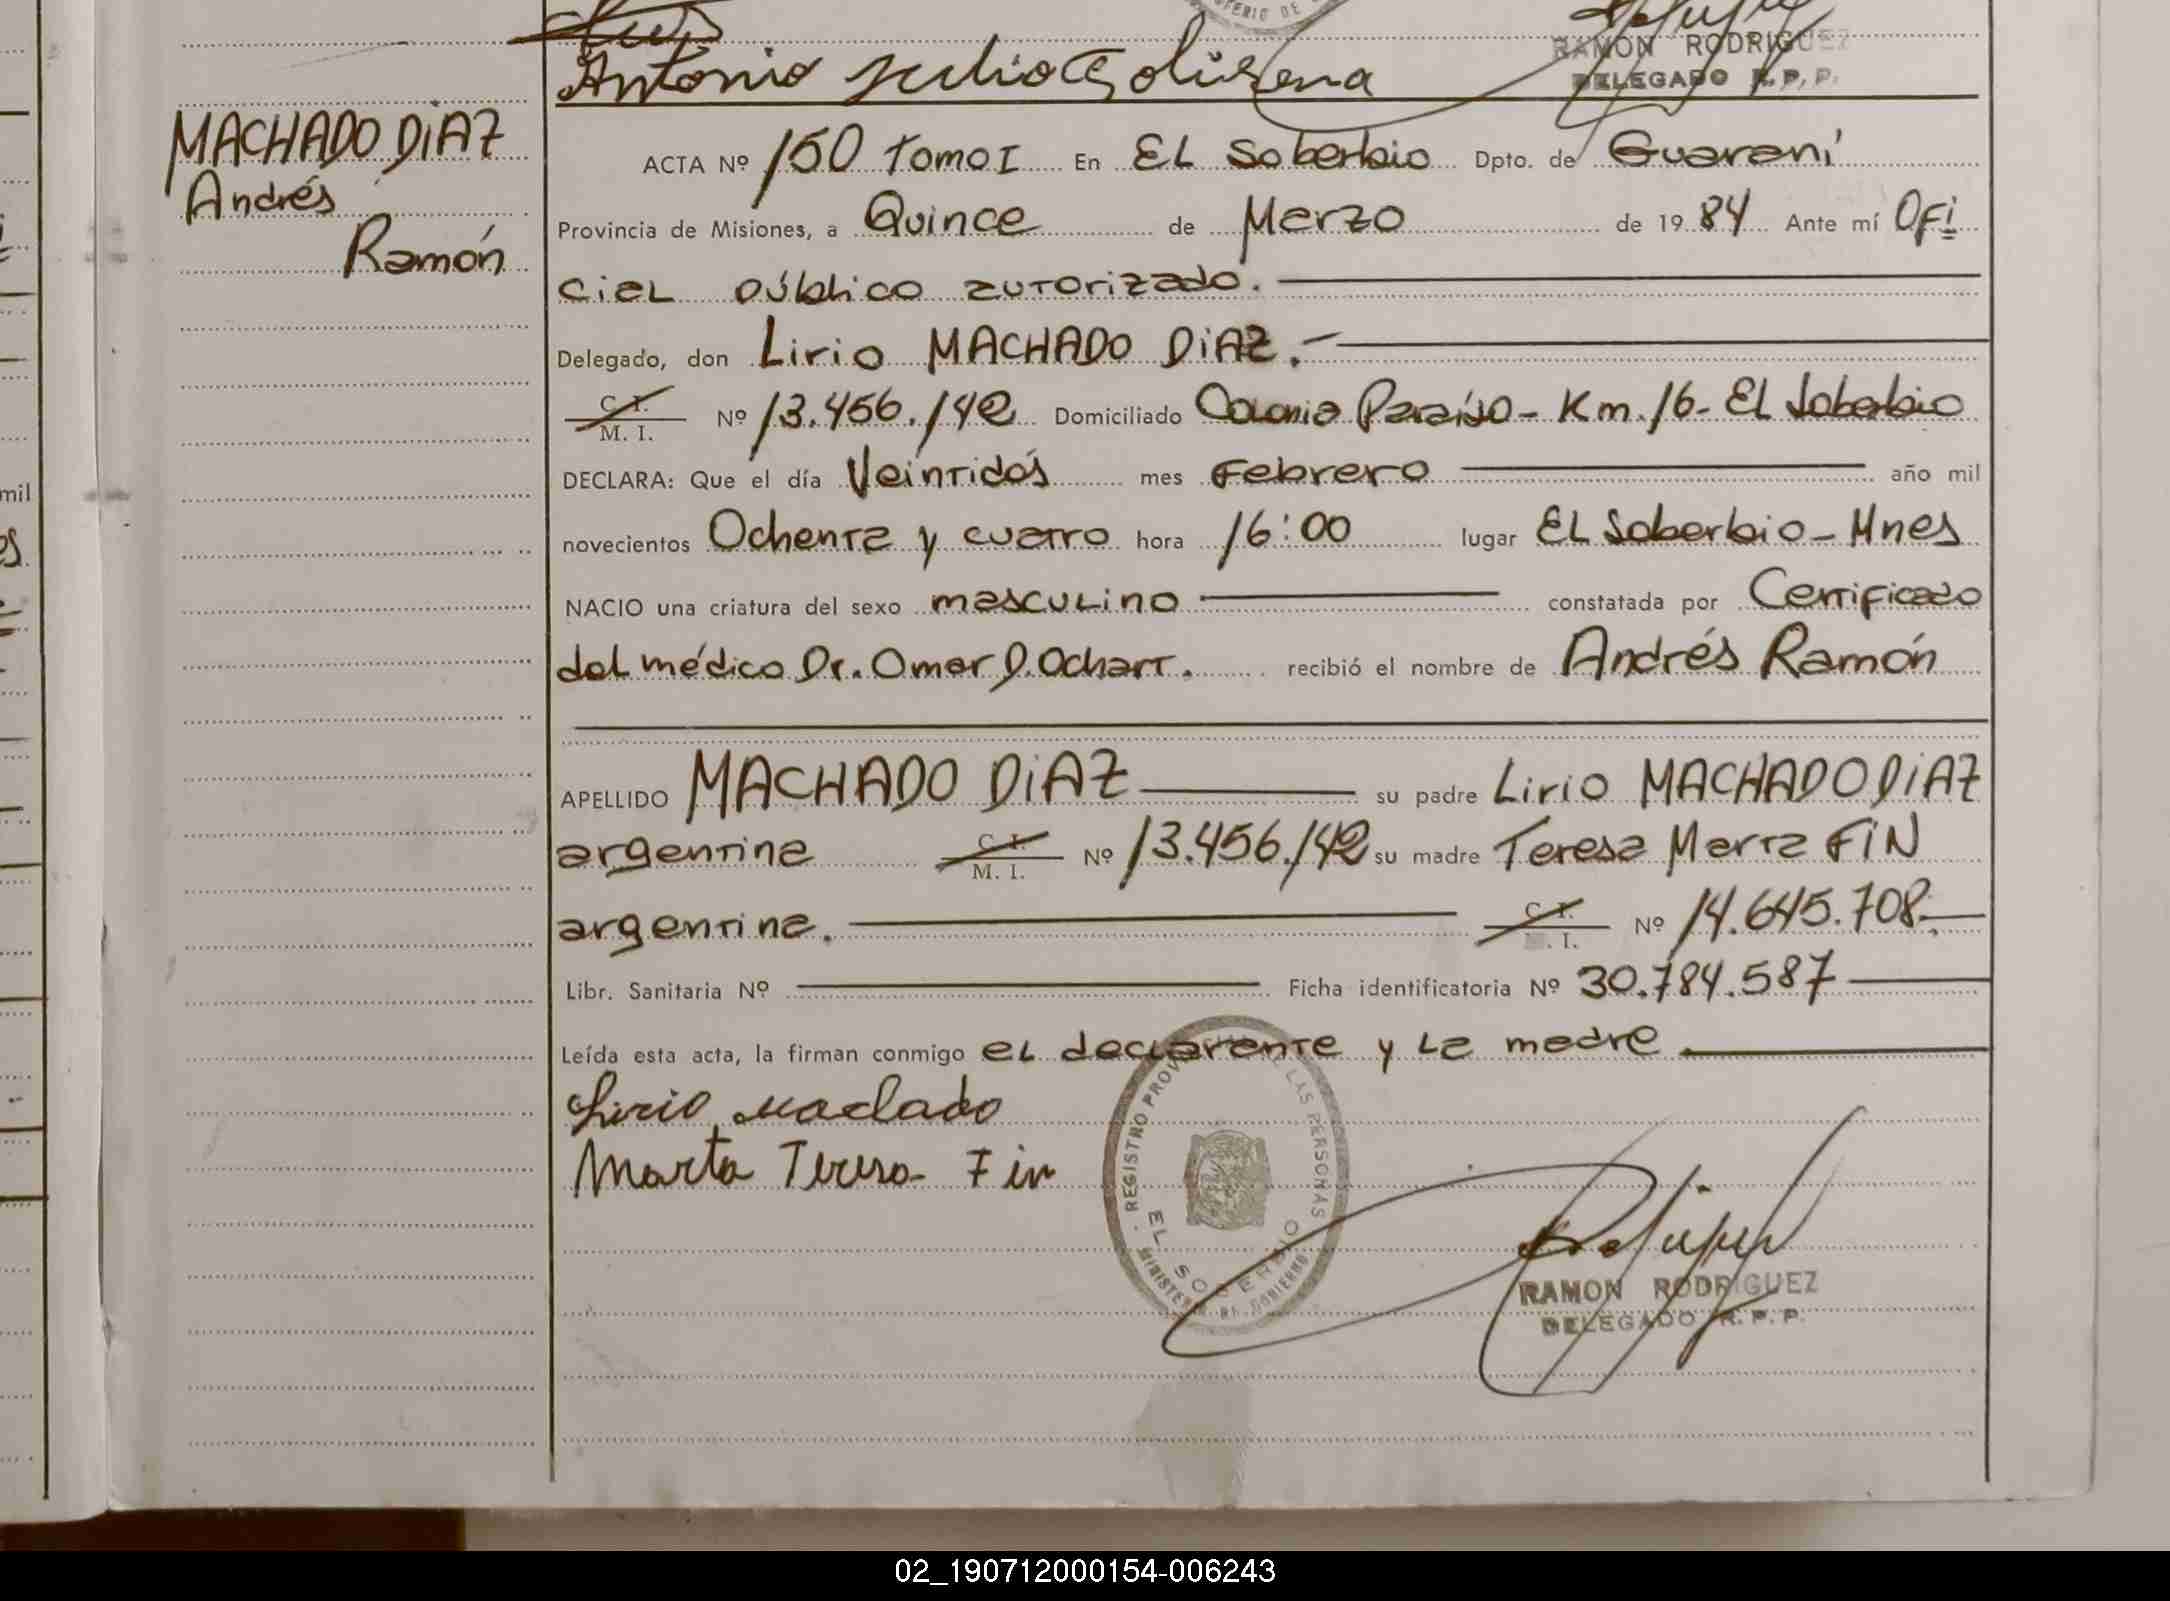 Antonio Julio
RAMON RODRIGUEZ
DELEGADO R.P.P.
MACHADO DiAZ
Andrés
Ramón
ACTA Nº 150 Tomo I En EL Soberbio Dpto. de Guaraní
Provincia de Misiones, a Quince de Marzo de 1984 Ante mí Ofi
cial público autorizado.
Delegado, don Lirio MACHADO DiAZ.
C. I.
M. I. Nº 13.456.142 Domiciliado Colonia Paraíso - Km. 16 - EL Soberbio
DECLARA: Que el día Veintidós mes Febrero año mil
novecientos Ochenta y cuatro hora 16:00 lugar EL Soberbio - Mnes
NACIO una criatura del sexo masculino constatada por Certificado
del médico Dr. Omar D. Ochart. recibió el nombre de Andrés Ramón
APELLIDO MACHADO DiAZ su padre Lirio MACHADO DiAZ
argentina C. I.
M. I. Nº 13.456.142 su madre Teresa Marta FiN
argentina. C. I.
M. I. Nº 14.645.708.
Libr. Sanitaria Nº Ficha identificatoria Nº 30.784.587
Leída esta acta, la firman conmigo el declarante y la madre
Lirio Machado
Marta Teresa Fin
REGISTRO PROV LAS PERSONAS
EL SOBERBIO
MINISTERIO DE GOBIERNO
RAMON RODRIGUEZ
DELEGADO R.P.P.
mil
02_190712000154-006243